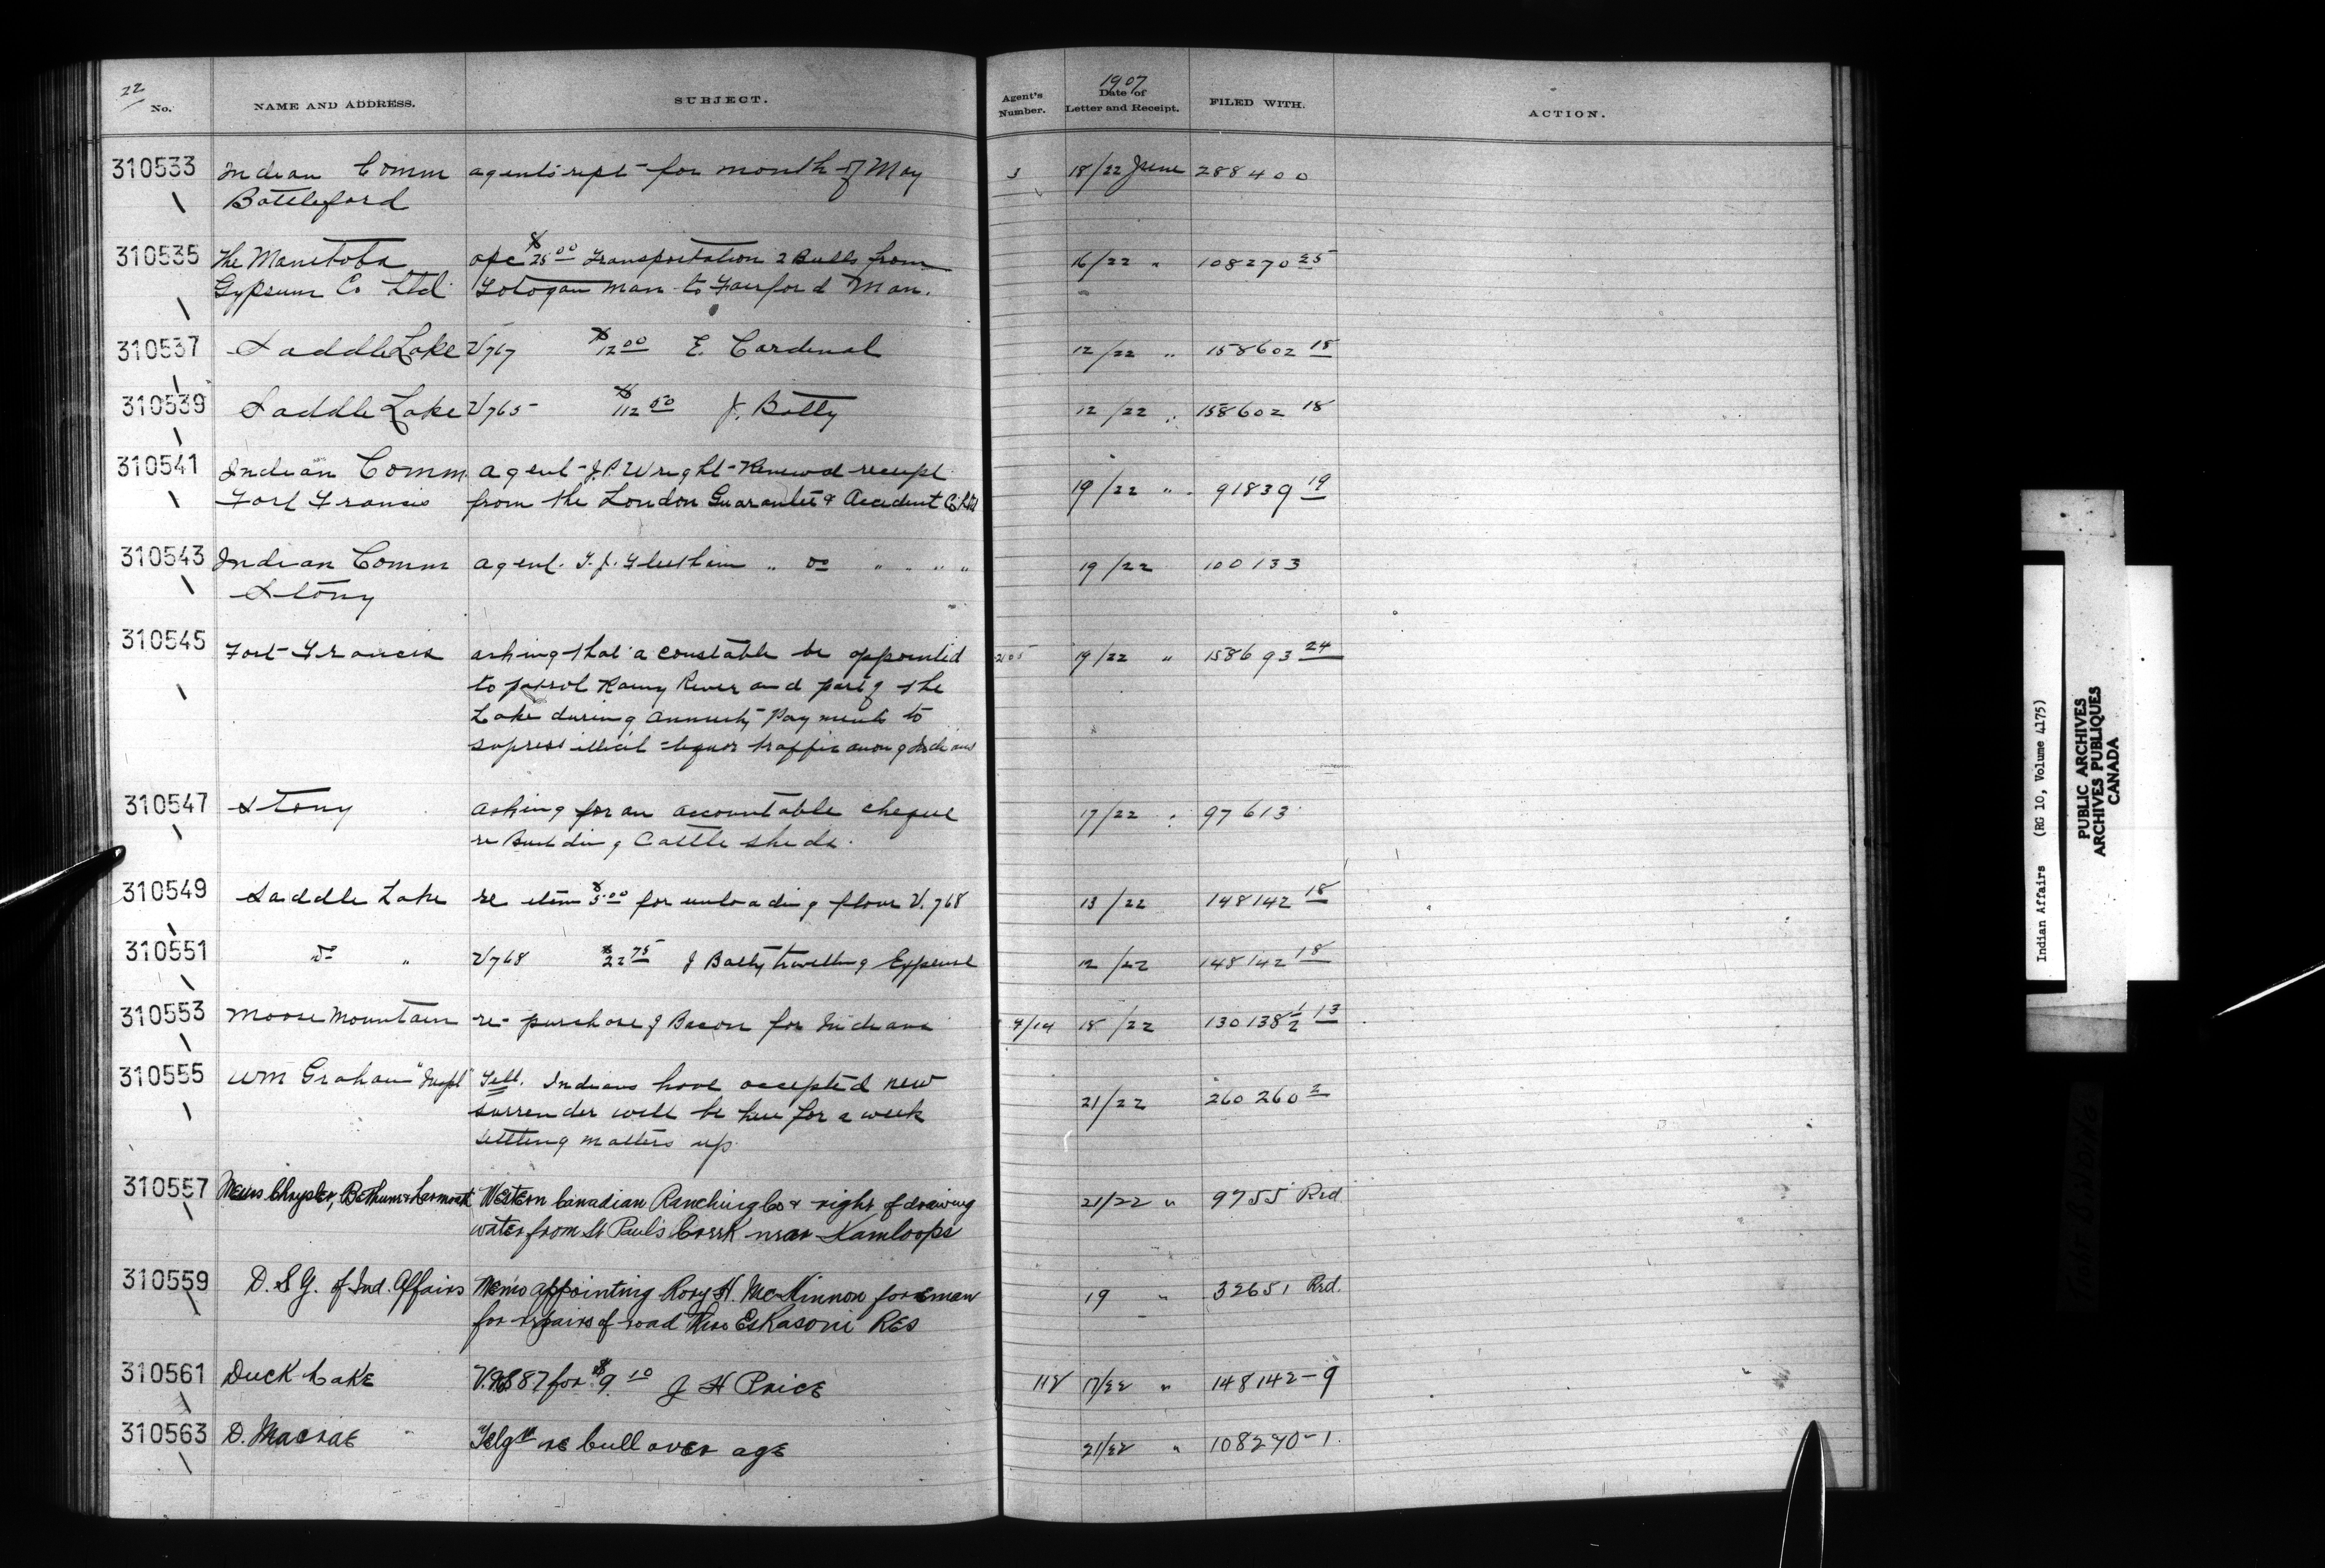 22
No. NAME AND ADDRESS. SUBJECT. Agent's Number. 1907 Date of Letter and Receipt. FILED WITH. ACTION.
310533 Indian Comm agents rept for month of May 3 18/22 June 288400
Battleford
310535 The Manitoba a/c $25.00 Transportation 2 Bulls from 16/22 " 108270 25
Gypsum Co Ltd Totogan Man to Fairford Man.
310537 Saddle Lake V767 $12.00 E. Cardinal 12/22 " 158602 18
310539 Saddle Lake V765 $112.50 J. Batty 12/22 " 158602 18
310541 Indian Comm agent J.P. Wright Renewal receipt 19/22 " 91839 19
Fort Francis from the London Guarantee & Accident Co Ltd
310543 Indian Comm agent T.J. Fleetham " do " " " " 19/22 100133
Stony
310545 Fort Francis asking that a constable be appointed 2105 19/22 " 158693 24
to patrol Rainy River and part of the
Lake during annuity Payments to
supress illicit liquor traffic among Indians
310547 Stony asking for an accountable cheque 17/22 " 97613
re Building Cattle sheds.
310549 Saddle Lake re item $5.00 for unloading flour V.768 13/22 148142 18
310551 do " V768 $22.75 J Batty travelling Expense 12/22 148142 18
310553 Moose Mountain re purchase of Bacon for Indians 4/14 18/22 130138 1/2 13
310555 Wm Graham "Inspt" Tell. Indians have accepted new 21/22 260260 2
surrender will be here for a week
settling matters up
310557 Messrs Chrysler, Bethune & Larmonth Western Canadian Ranching Co & right of drawing 21/22 " 9755 Red
water from St Pauls Creek near Kamloops
310559 D. S. G. of Ind. Affairs Memo appointing Rory H. McKinnon foreman 19 " 32651 Red.
for repairs of road thro Eskasoni Res
310561 Duck Lake for $9.10 J H Price 118 17/22 " 148142-9
310563 D. Macrae Telgm re bull over age 21/22 " 108270-1.
Indian Affairs (RG 10, Volume 4175)
PUBLIC ARCHIVES
ARCHIVES PUBLIQUES
CANADA